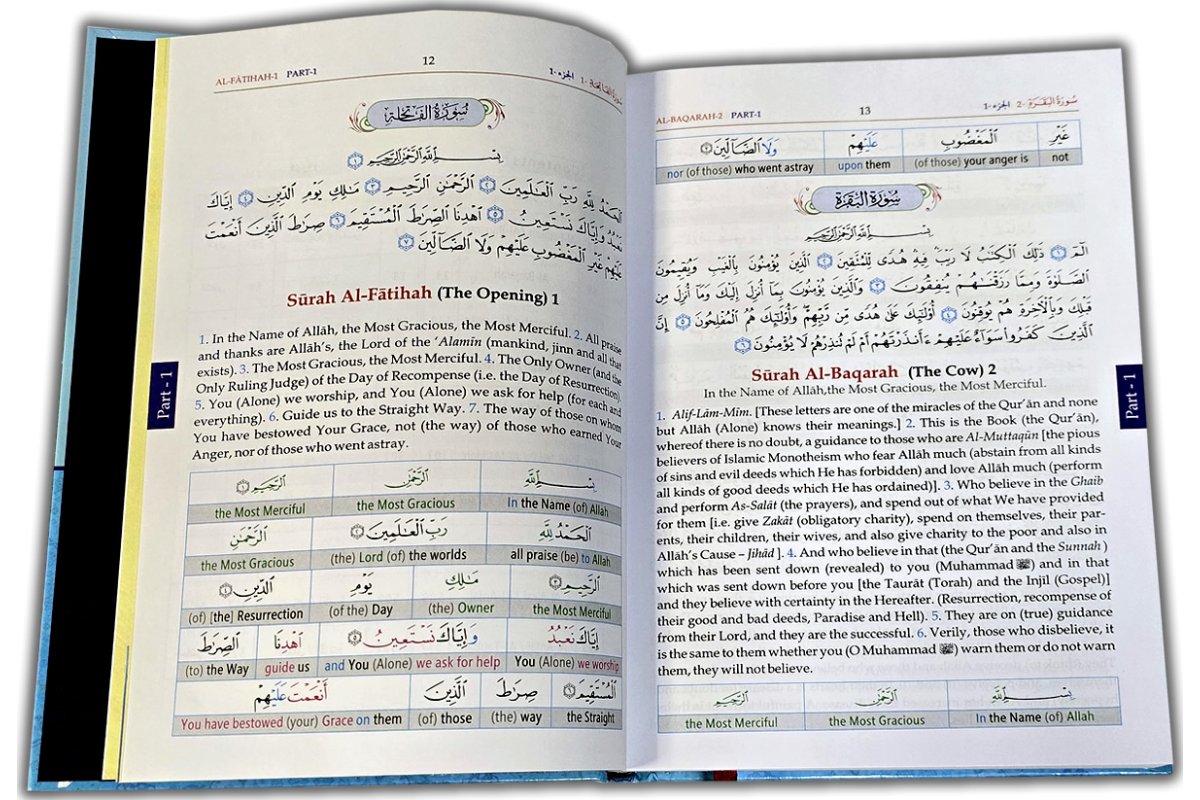 AL-FĀTIHAH-1 PART-1 12 الجزء -1 سورة الفاتحة -1
سُورَةُ الفَاتِحَةِ
بِسْمِ ٱللَّهِ ٱلرَّحْمَٰنِ ٱلرَّحِيمِ ۝١
ٱلْحَمْدُ لِلَّهِ رَبِّ ٱلْعَٰلَمِينَ ۝٢ ٱلرَّحْمَٰنِ ٱلرَّحِيمِ ۝٣ مَٰلِكِ يَوْمِ ٱلدِّينِ ۝٤ إِيَّاكَ
نَعْبُدُ وَإِيَّاكَ نَسْتَعِينُ ۝٥ ٱهْدِنَا ٱلصِّرَٰطَ ٱلْمُسْتَقِيمَ ۝٦ صِرَٰطَ ٱلَّذِينَ أَنْعَمْتَ
عَلَيْهِمْ غَيْرِ ٱلْمَغْضُوبِ عَلَيْهِمْ وَلَا ٱلضَّآلِّينَ ۝٧
Sūrah Al-Fātihah (The Opening) 1
1. In the Name of Allāh, the Most Gracious, the Most Merciful. 2. All praise
and thanks are Allāh's, the Lord of the 'Alamīn (mankind, jinn and all that
exists). 3. The Most Gracious, the Most Merciful. 4. The Only Owner (and the
Only Ruling Judge) of the Day of Recompense (i.e. the Day of Resurrection).
5. You (Alone) we worship, and You (Alone) we ask for help (for each and
everything). 6. Guide us to the Straight Way. 7. The way of those on whom
You have bestowed Your Grace, not (the way) of those who earned Your
Anger, nor of those who went astray.
بِسْمِ ٱللَّهِ ٱلرَّحْمَٰنِ ٱلرَّحِيمِ ۝١
the Most Merciful the Most Gracious In the Name (of) Allah
ٱلْحَمْدُ لِلَّهِ رَبِّ ٱلْعَٰلَمِينَ ۝٢ ٱلرَّحْمَٰنِ
the Most Gracious (the) Lord (of) the worlds all praise (be) to Allah
ٱلرَّحِيمِ ۝٣ مَٰلِكِ يَوْمِ ٱلدِّينِ ۝٤
(of) [the] Resurrection (of the) Day (the) Owner the Most Merciful
إِيَّاكَ نَعْبُدُ وَإِيَّاكَ نَسْتَعِينُ ۝٥ ٱهْدِنَا ٱلصِّرَٰطَ
(to) the Way guide us and You (Alone) we ask for help You (Alone) we worship
ٱلْمُسْتَقِيمَ ۝٦ صِرَٰطَ ٱلَّذِينَ أَنْعَمْتَ عَلَيْهِمْ
You have bestowed (your) Grace on them (of) those (the) way the Straight
Part - 1
AL-BAQARAH-2 PART-1 13 الجزء -1 سورة البقرة -2
غَيْرِ ٱلْمَغْضُوبِ عَلَيْهِمْ وَلَا ٱلضَّآلِّينَ ۝٧
nor (of those) who went astray upon them (of those) your anger is not
سُورَةُ البَقَرَةِ
بِسْمِ ٱللَّهِ ٱلرَّحْمَٰنِ ٱلرَّحِيمِ
الٓمٓ ۝١ ذَٰلِكَ ٱلْكِتَٰبُ لَا رَيْبَ ۛ فِيهِ ۛ هُدًى لِّلْمُتَّقِينَ ۝٢ ٱلَّذِينَ يُؤْمِنُونَ بِٱلْغَيْبِ وَيُقِيمُونَ
ٱلصَّلَوٰةَ وَمِمَّا رَزَقْنَٰهُمْ يُنفِقُونَ ۝٣ وَٱلَّذِينَ يُؤْمِنُونَ بِمَآ أُنزِلَ إِلَيْكَ وَمَآ أُنزِلَ مِن
قَبْلِكَ وَبِٱلْءَاخِرَةِ هُمْ يُوقِنُونَ ۝٤ أُو۟لَٰٓئِكَ عَلَىٰ هُدًى مِّن رَّبِّهِمْ ۖ وَأُو۟لَٰٓئِكَ هُمُ ٱلْمُفْلِحُونَ ۝٥ إِنَّ
ٱلَّذِينَ كَفَرُوا۟ سَوَآءٌ عَلَيْهِمْ ءَأَنذَرْتَهُمْ أَمْ لَمْ تُنذِرْهُمْ لَا يُؤْمِنُونَ ۝٦
Sūrah Al-Baqarah (The Cow) 2
In the Name of Allāh,the Most Gracious, the Most Merciful.
1. Alif-Lām-Mīm. [These letters are one of the miracles of the Qur'ān and none
but Allāh (Alone) knows their meanings.] 2. This is the Book (the Qur'ān),
whereof there is no doubt, a guidance to those who are Al-Muttaqūn [the pious
believers of Islamic Monotheism who fear Allāh much (abstain from all kinds
of sins and evil deeds which He has forbidden) and love Allāh much (perform
all kinds of good deeds which He has ordained)]. 3. Who believe in the Ghaib
and perform As-Salāt (the prayers), and spend out of what We have provided
for them [i.e. give Zakāt (obligatory charity), spend on themselves, their par-
ents, their children, their wives, and also give charity to the poor and also in
Allāh's Cause – Jihād ]. 4. And who believe in that (the Qur'ān and the Sunnah )
which has been sent down (revealed) to you (Muhammad ﷺ) and in that
which was sent down before you [the Taurāt (Torah) and the Injīl (Gospel)]
and they believe with certainty in the Hereafter. (Resurrection, recompense of
their good and bad deeds, Paradise and Hell). 5. They are on (true) guidance
from their Lord, and they are the successful. 6. Verily, those who disbelieve, it
is the same to them whether you (O Muhammad ﷺ) warn them or do not warn
them, they will not believe.
بِسْمِ ٱللَّهِ ٱلرَّحْمَٰنِ ٱلرَّحِيمِ
the Most Merciful the Most Gracious In the Name (of) Allah
Part - 1